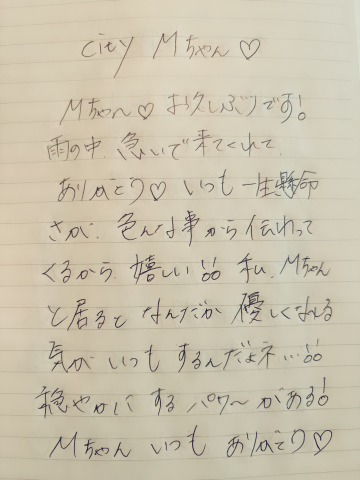 city Mちゃん♡
Mちゃん♡ お久しぶりです!
雨の中、急いで来てくれて、
ありがとう♡ いつも 一生懸命
さが、色んな事から伝わって
くるから、嬉しい!! 私、Mちゃん
と居ると なんだか 優しくなれる
気が いつも するんだよネ…!!
穏やかに する パワ〜 がある!
Mちゃん いつも ありがとう♡